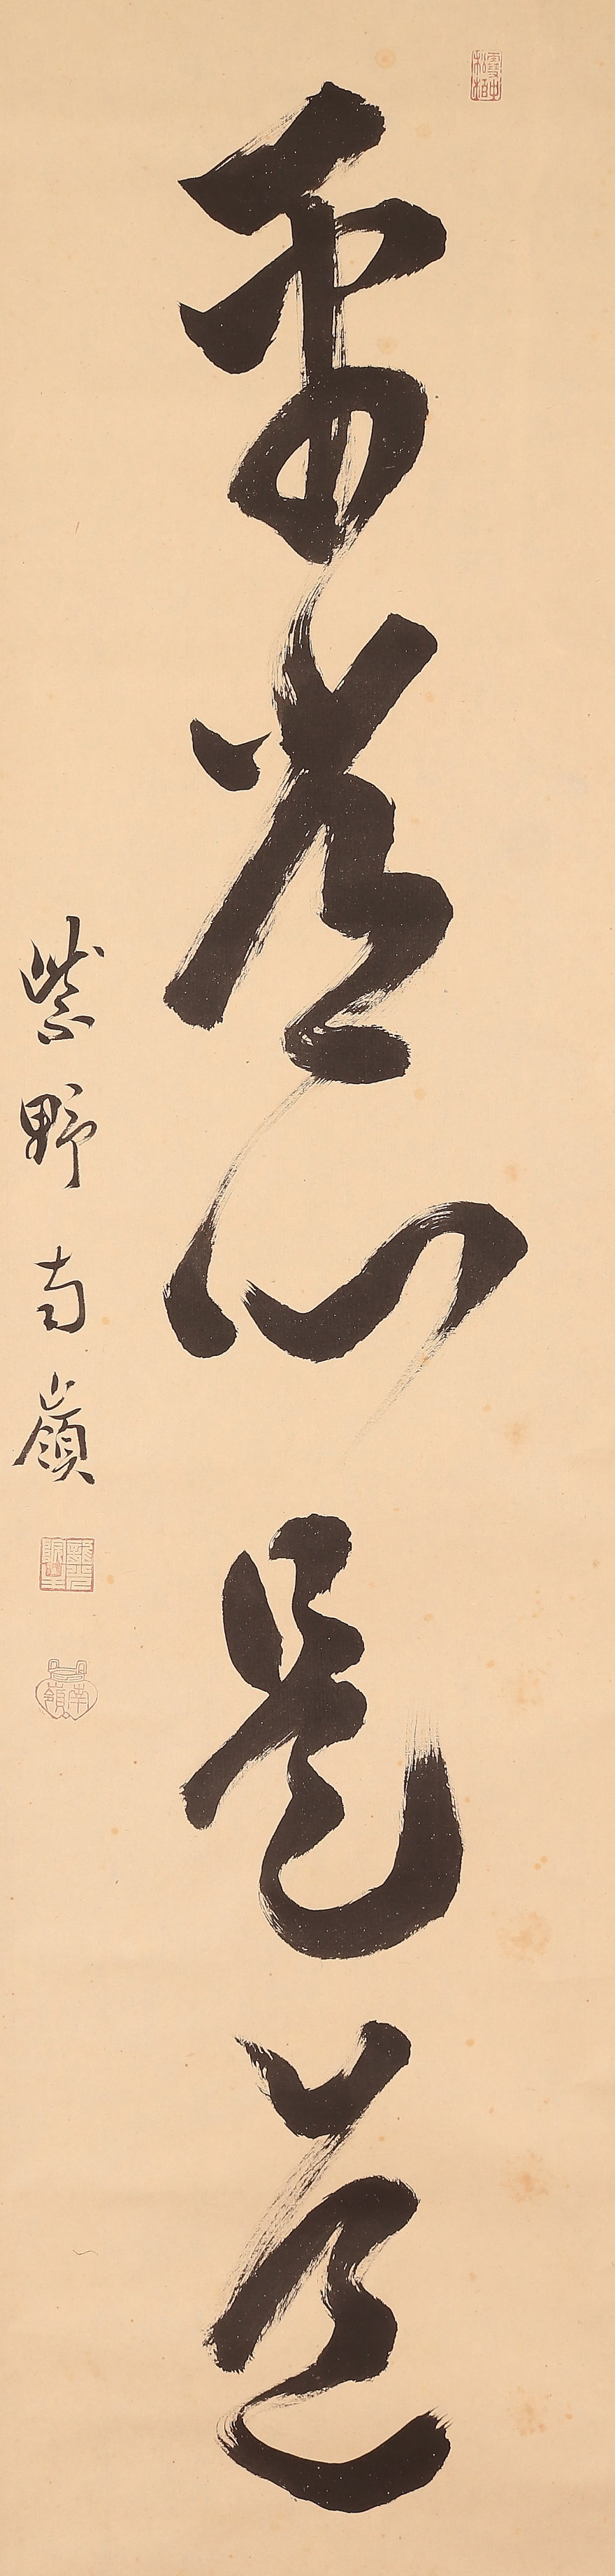 平常心是道
紫野南嶺
南嶺